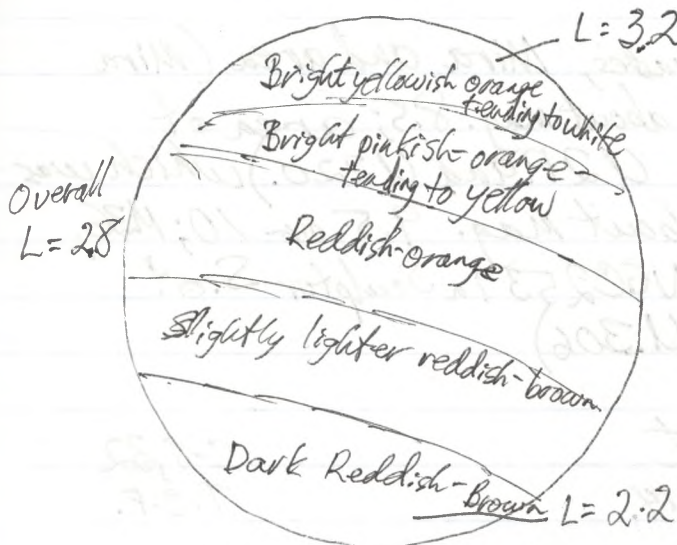 L = 3.2
Bright yellowish orange
tending to white
Bright pinkish-orange -
tending to yellow
Overall
L = 2.8
Reddish-orange
Slightly lighter reddish-brown
Dark Reddish-Brown
L = 2.2